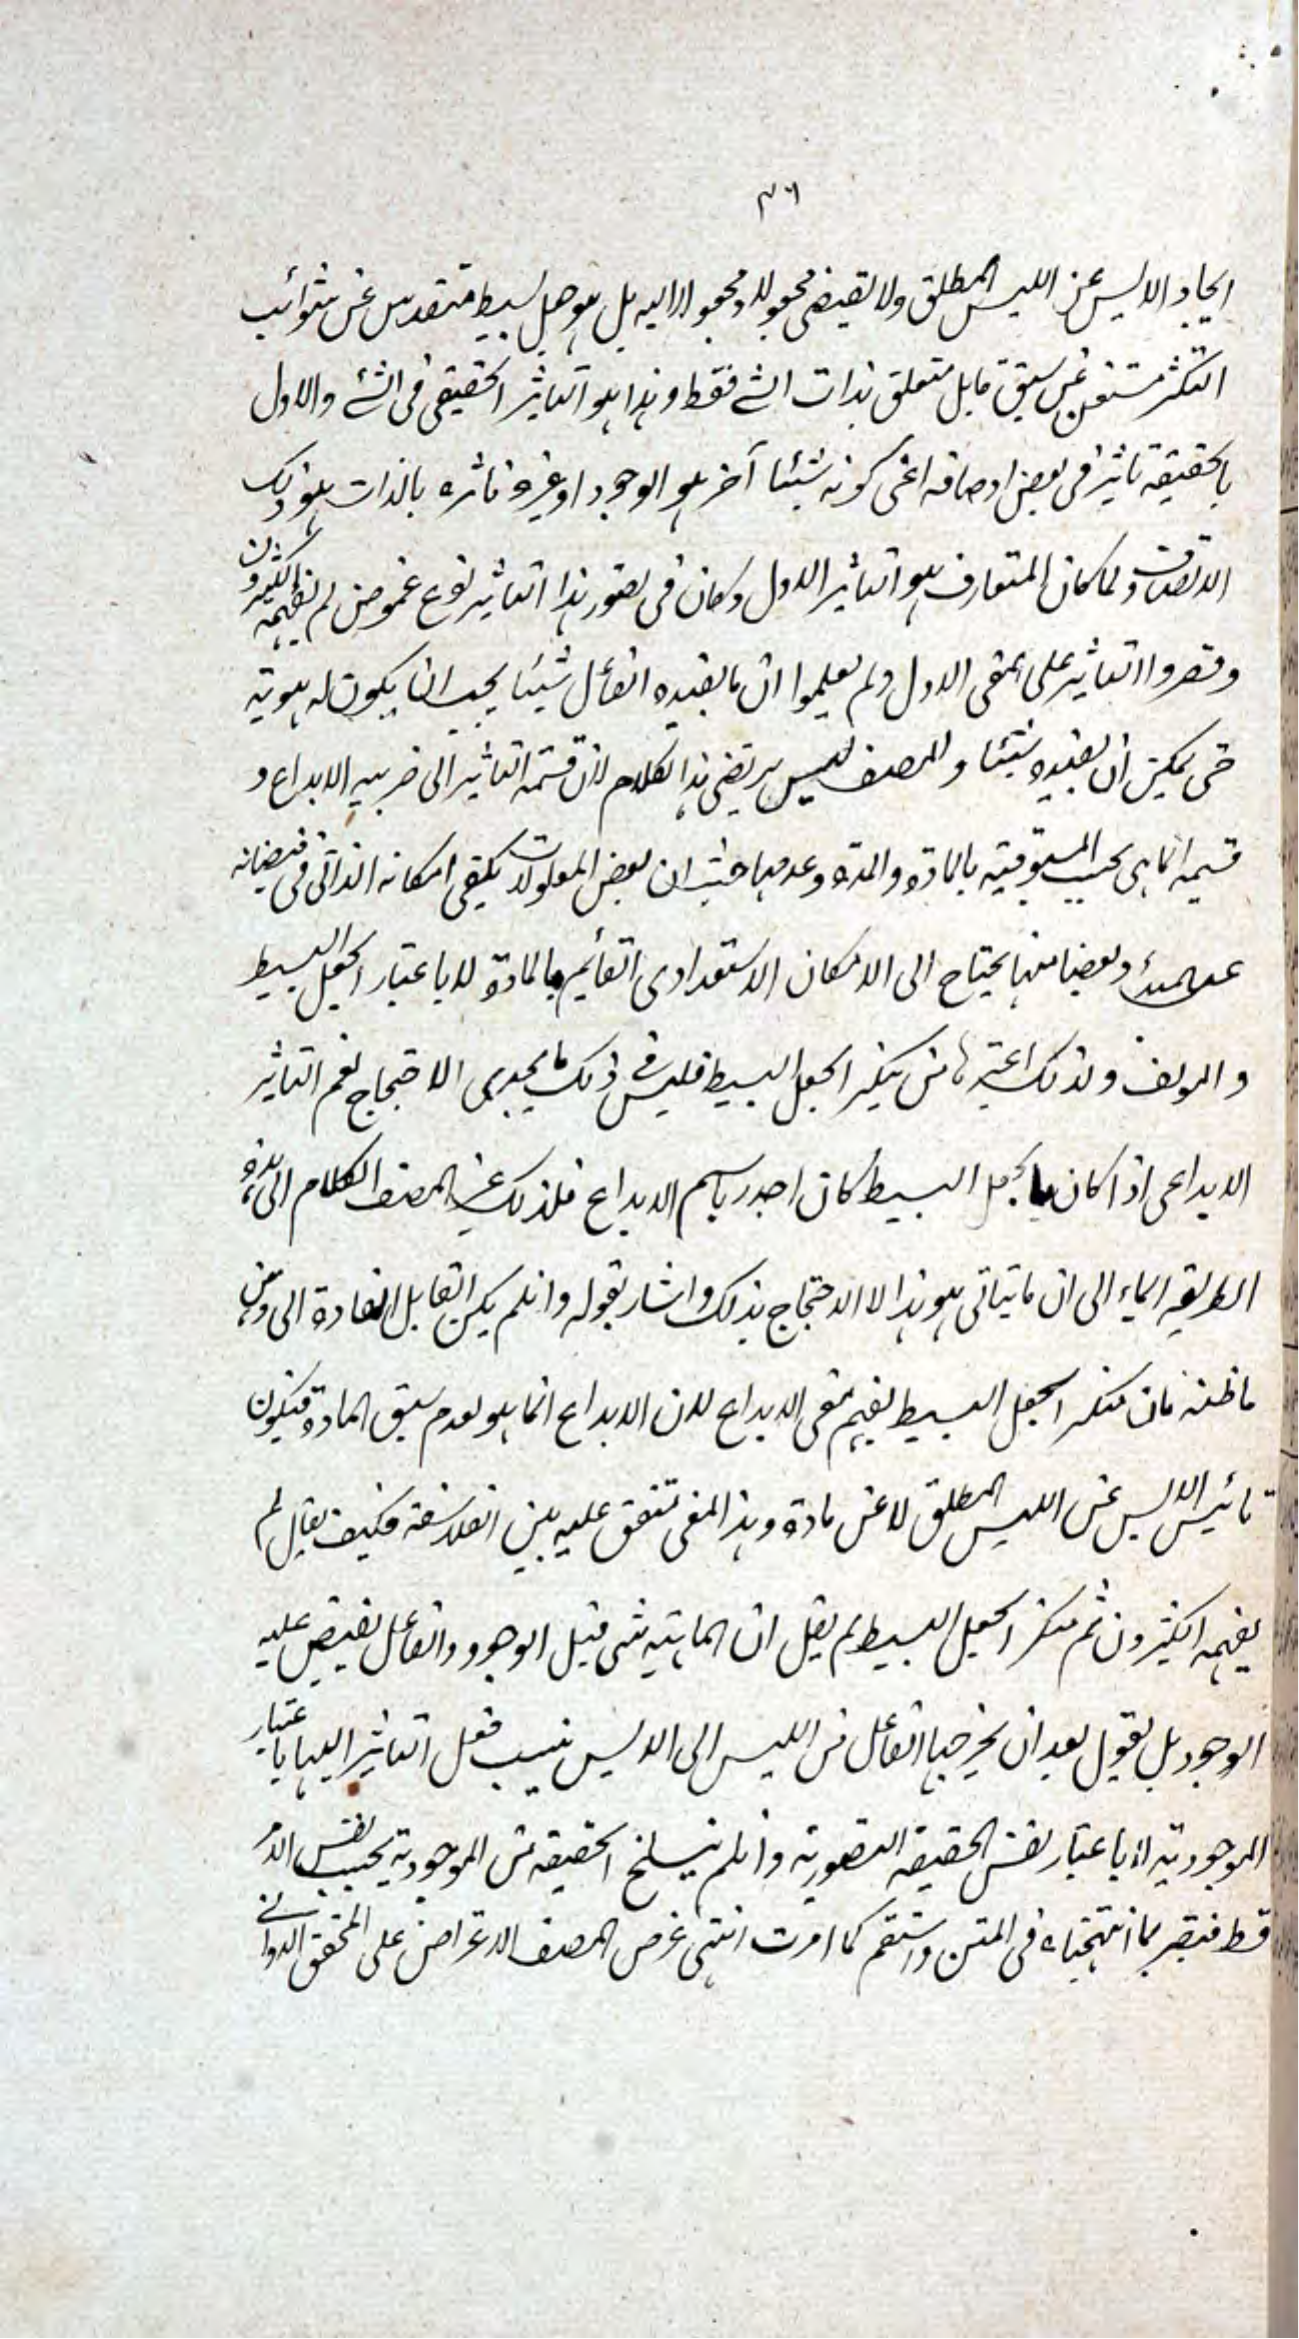 ٣٦
ايجاد الايس عن الليس المطلق ولا يقتضى مجعولا ومجعولا اليه بل هو جعل بسيط متقدس عن شوائب
التكثر مستغن عن سبق قابل متعلق بذات الشئ فقط وهذا هو التاثير الحقيقى فى الشئ والاول
بالحقيقة تاثير فى بعض اوصافه اعنى كونه شيئا آخر هو الوجود او غيره فاثره بالذات هو ذلك
الاتصاف ولما كان المتعارف هو التاثير الاول وكان فى تصور هذا التاثير نوع غموض لم يفهمه الكثيرون
وقصروا التاثير على المعنى الاول ولم يعلموا ان ما يفيده الفاعل شيئا يجب ان يكون له هوية
حتى يمكن ان يفيده شيئا والمصنف ليس يرتضى هذا الكلام لان قسمة التاثير الى ضربيه الابداع و
قسيمه انما هى بحسب المسبوقية بالمادة والمدة وعدمها حيث ان بعض المعلولات يكفى امكانه الذاتى فى فيضانه
عن المبدأ وبعضا منها يحتاج الى الامكان الاستعدادى القائم بالمادة لا باعتبار الجعل البسيط
والمولف ولذلك اعتبرها من ينكر الجعل البسيط فليس فى ذلك ما يجدى الاحتجاج نعم التاثير
الابداعى اذا كان بالجعل البسيط كان اجدر باسم الابداع فلذلك غير المصنف الكلام الى هذه
الطريقه ايماء الى ان ما يتاتى هو هذا لا الاحتجاج بذلك واشار بقوله وان لم يكن القابل الى وهن
ما ظنه فان منكر الجعل البسيط يفهم معنى الابداع لان الابداع انما هو بعدم سبق المادة فيكون
تائيس الايس عن الليس المطلق لا عن مادة وهذا المعنى متفق عليه بين الفلاسفة فكيف يقال لم
يفهمه الكثيرون ثم منكر الجعل البسيط لم يقل ان الماهية شئ قبل الوجود والفاعل يفيض عليه
الوجود بل يقول بعد ان يخرجها الفاعل من الليس الى الايس ينسب فعل التاثير اليها باعتبار
الموجودية لا باعتبار نفس الحقيقة التصورية وان لم ينسلخ الحقيقة من الموجودية بحسب نفس الامر
قط فتبصر بما انتهجناه فى المتن واستقم كما امرت انتهى غرض المصنف الاعتراض على المحقق الدوانى